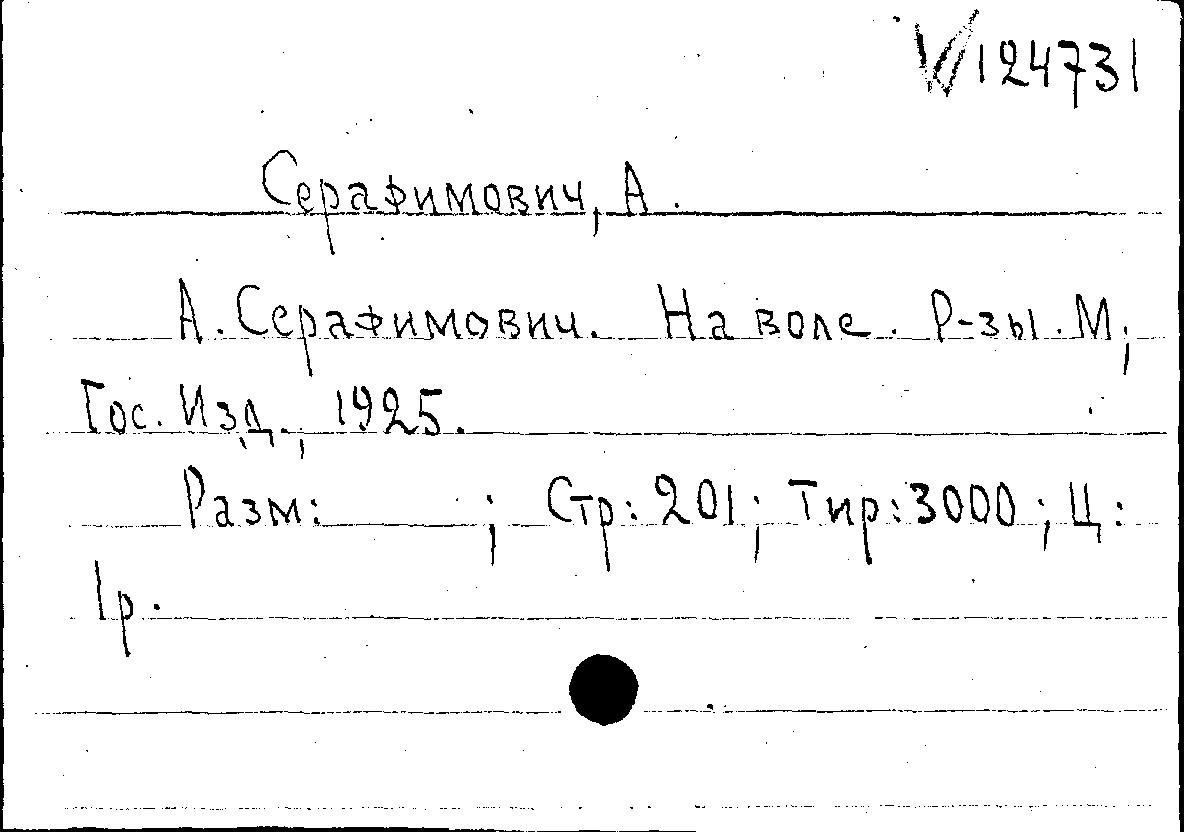 W124731
Серафимович, А.
А. Серафимович. На воле. Р-зы. М;
Гос. Изд., 1925.
Разм: ; Стр: 201; Тир: 3000; Ц:
1р.